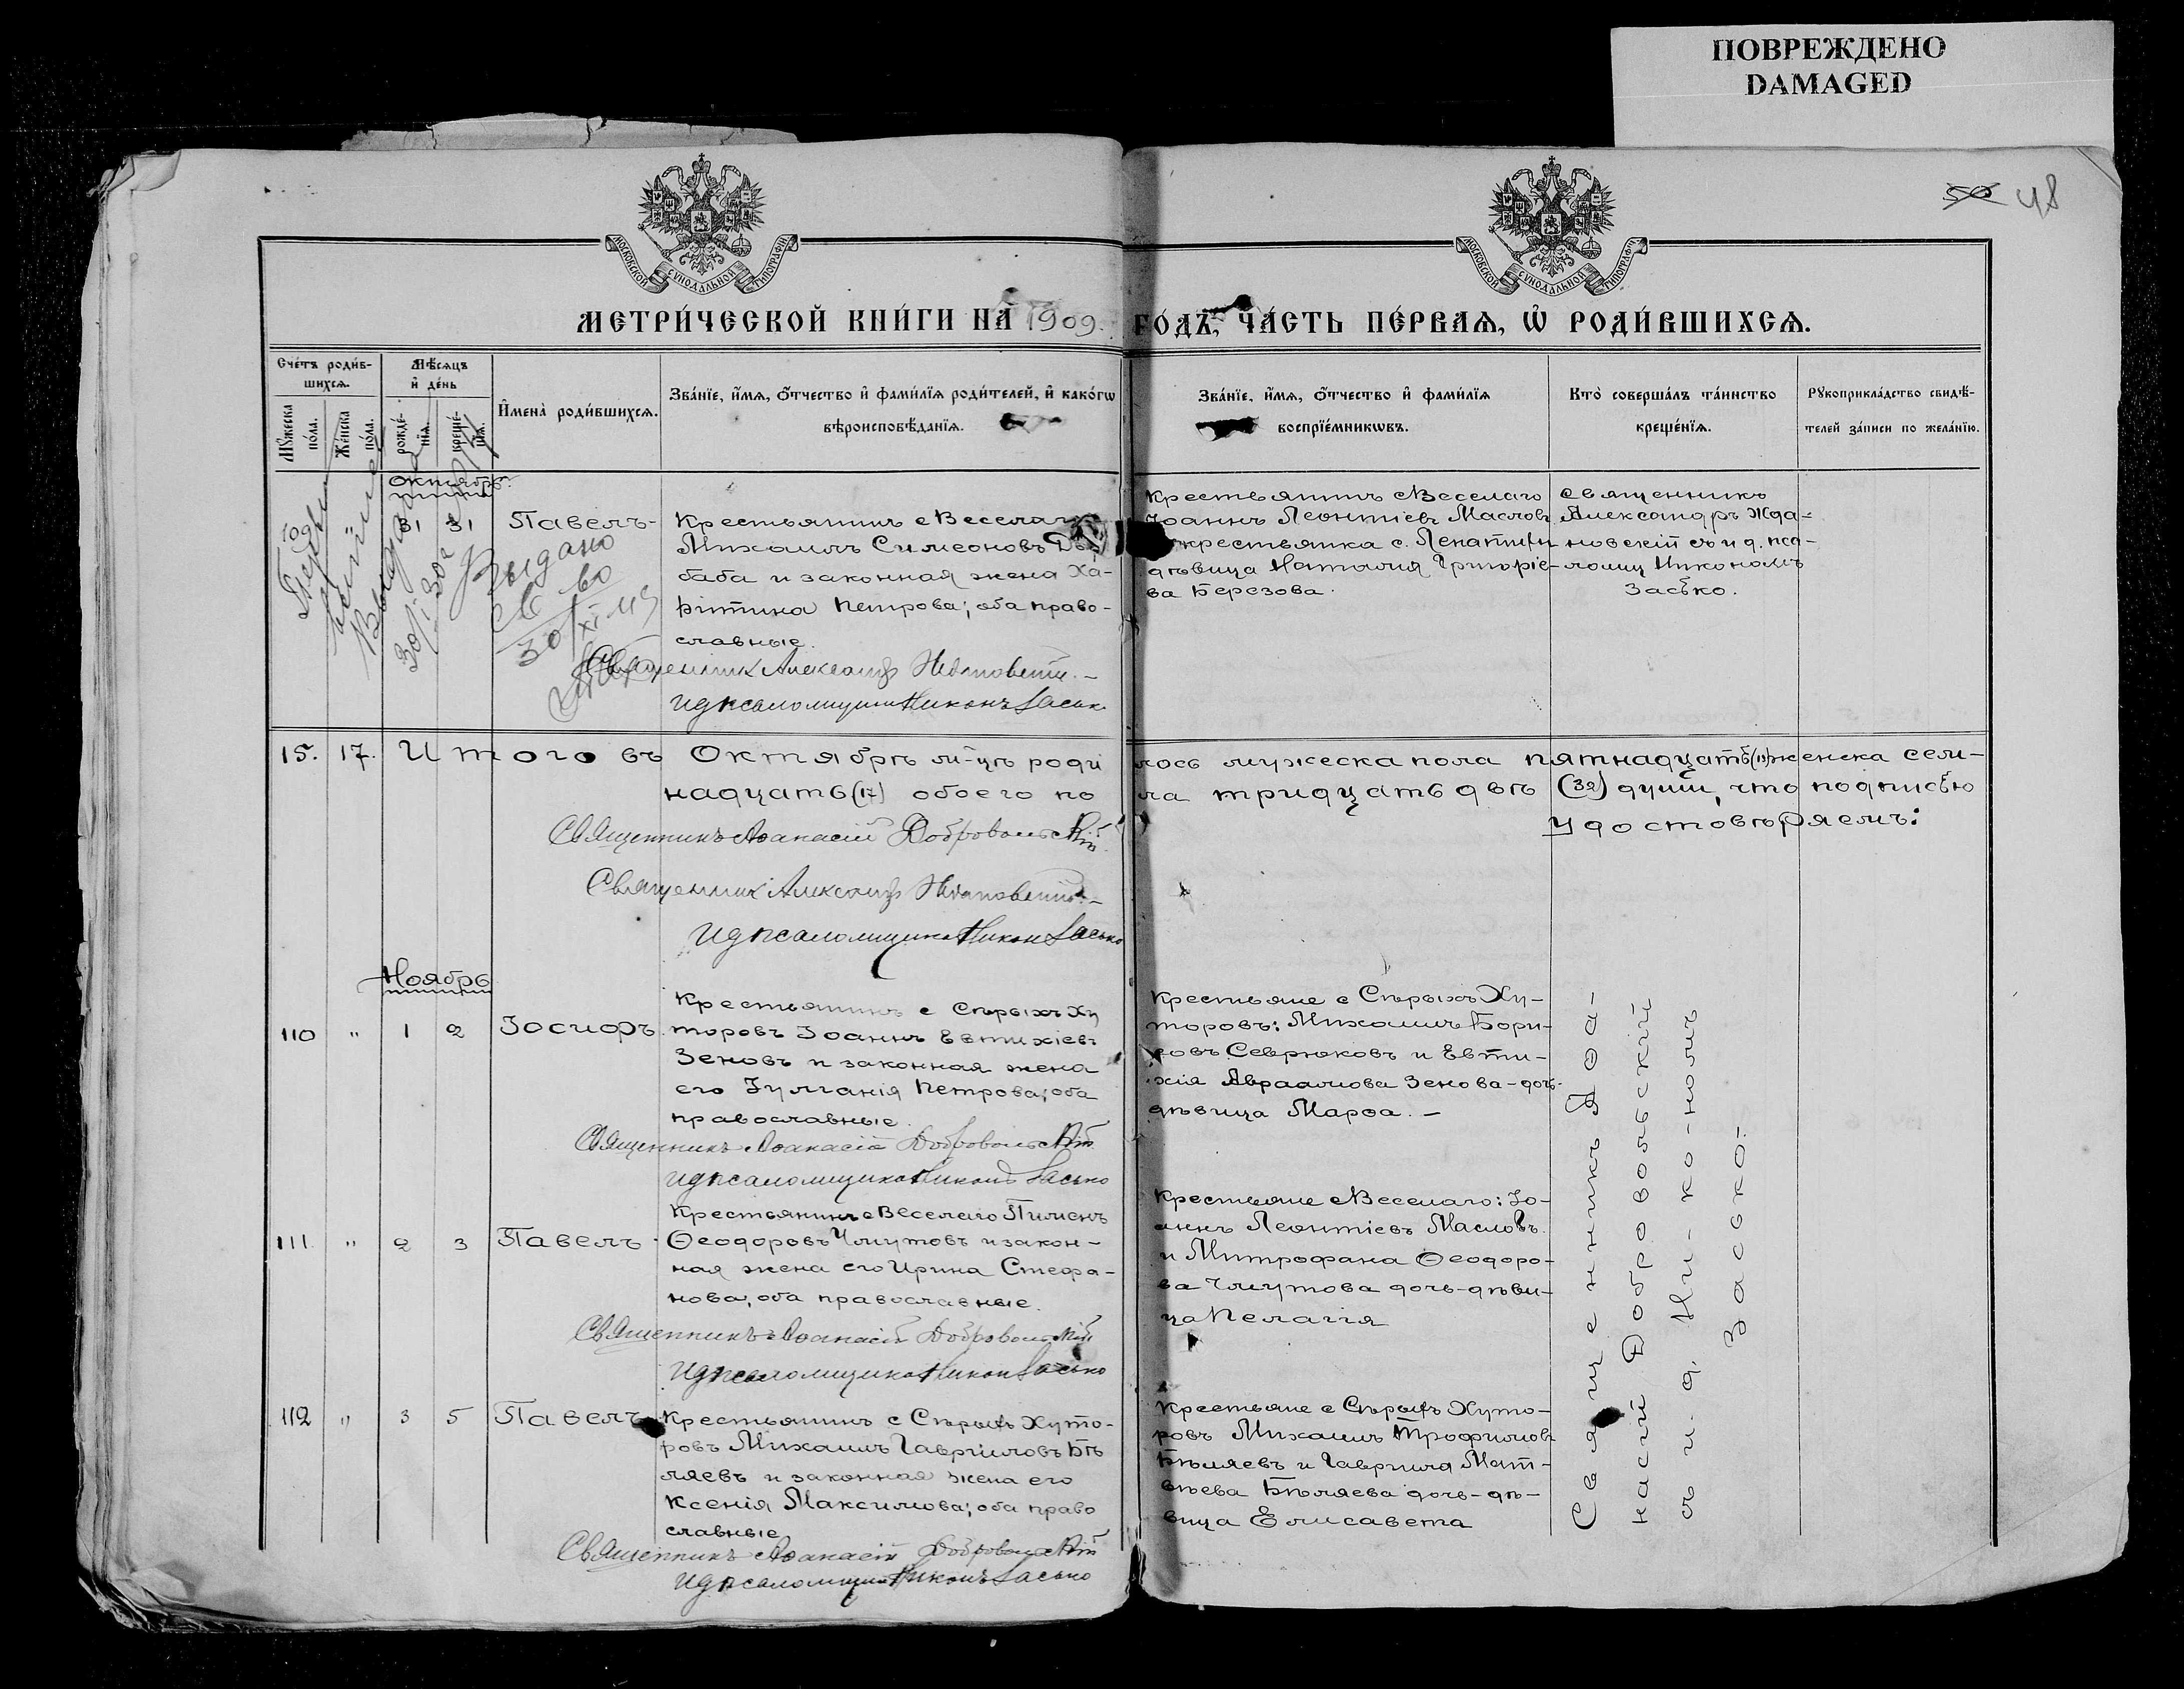 ПОВРЕЖДЕНО
DAMAGED
50 48
МОСКОВСКОЙ СУНОДАЛЬНОЙ ТИПОГРАФІИ
МОСКОВСКОЙ СУНОДАЛЬНОЙ ТИПОГРАФІИ
МЕТРИ́ЧЕСКОЙ КНИ́ГИ НА 1909. ГО́ДЪ, ЧА́СТЬ ПЕ́РВАѦ, Ѡ҆ РОДИ́ВШИХСѦ.
Сче́тъ роди́в-
шихсѧ.
Мꙋ́жеска по́ла.
Же́нска по́ла.
Мѣ́сѧцъ
и҆ де́нь
рожде́-
нїѧ.
креще́-
нїѧ.
И҆мена̀ роди́вшихсѧ.
Зва́нїе, и҆́мѧ, ѻ҆́тчество и҆ фами́лїѧ роди́телей, и҆ како́гѡ
вѣроисповѣ́данїѧ.
Зва́нїе, и҆́мѧ, ѻ҆́тчество и҆ фами́лїѧ
воспрїе́мникѡвъ.
Кто̀ соверша́лъ та́инство
креще́нїѧ.
Рꙋкоприкла́дство свидѣ́-
телей за́писи по жела́нїю.
Октябрь.
109 " 31 31 Павелъ
Крестьянинъ с Веселаго
Михаилъ Симеоновъ
баба и законная жена Ха-
ритина Петрова; оба право-
славные.
Священник Александр Ждановскій.
И д псаломщика Никонъ Засько
Выдано
30/XI-43
Крестьянинъ с Веселаго
Іоаннъ Леонтіевъ Масловъ
крестьянка с.
дѣвица Наталия Григоріе-
ва Березова.
Священникъ
Александръ Жда-
новскій съ и д. пса-
ломщ Никономъ
Засько.
15. 17. Итого въ Октябрѣ м-цѣ роди
лось мужеска пола пятнадцать (15) женска сем-
надцать (17) обоего по
ла тридцать двѣ (32) души, что подписью
удостовѣряемъ:
Священникъ Аѳанасій Добровольскій
Священник Александр Ждановскій
И д псаломщика Никон Засько
Ноябрь
110 " 1 2 Іосифъ
Крестьянинъ с Сѣрыхъ Ху
торовъ Іоаннъ Евтихіевъ
Зеновъ и законная жена
его Іулианія Петрова; оба
православные.
Священникъ Аѳанасій Добровольскій
И д псаломщика Никонъ Засько
Крестьяне с Сѣрыхъ Ху-
торовъ: Михаилъ Бори-
совъ Севрюковъ и Евти-
хія Авраамова Зенова-дочь-
дѣвица Марѳа. —
111 " 2 3 Павелъ
Крестьянинъ с Веселаго Пименъ
Ѳеодоровъ Чмутовъ и закон-
ная жена его Ирина Стефа-
нова, оба православные.
Священникъ Аѳанасій Добровольскій
И д псаломщика Никон Засько
Крестьяне с Веселаго: Іо-
аннъ Леонтіевъ Масловъ
и Митрофана Ѳеодоро-
ва Чмутова дочь-дѣви-
ца Пелагія
112 " 3 5 Павелъ
Крестьянинъ с Сѣрыхъ Хуто-
ровъ Михаилъ Гавриловъ Бѣ
ляевъ и законная жена его
Ксенія Максимова; оба право
славные
Священникъ Аѳанасій Добровольскій
И д псаломщика Никонъ Засько
Крестьяне с Сѣрыхъ Хуто-
ровъ Михаилъ Трофимовъ
Бѣляевъ и Гавриила Мат-
вѣева Бѣляева дочь-дѣ-
вица Елисавета
Священникъ Аѳа-
насій Добровольскій
съ и. д. Ни-ко-номъ
Засько.